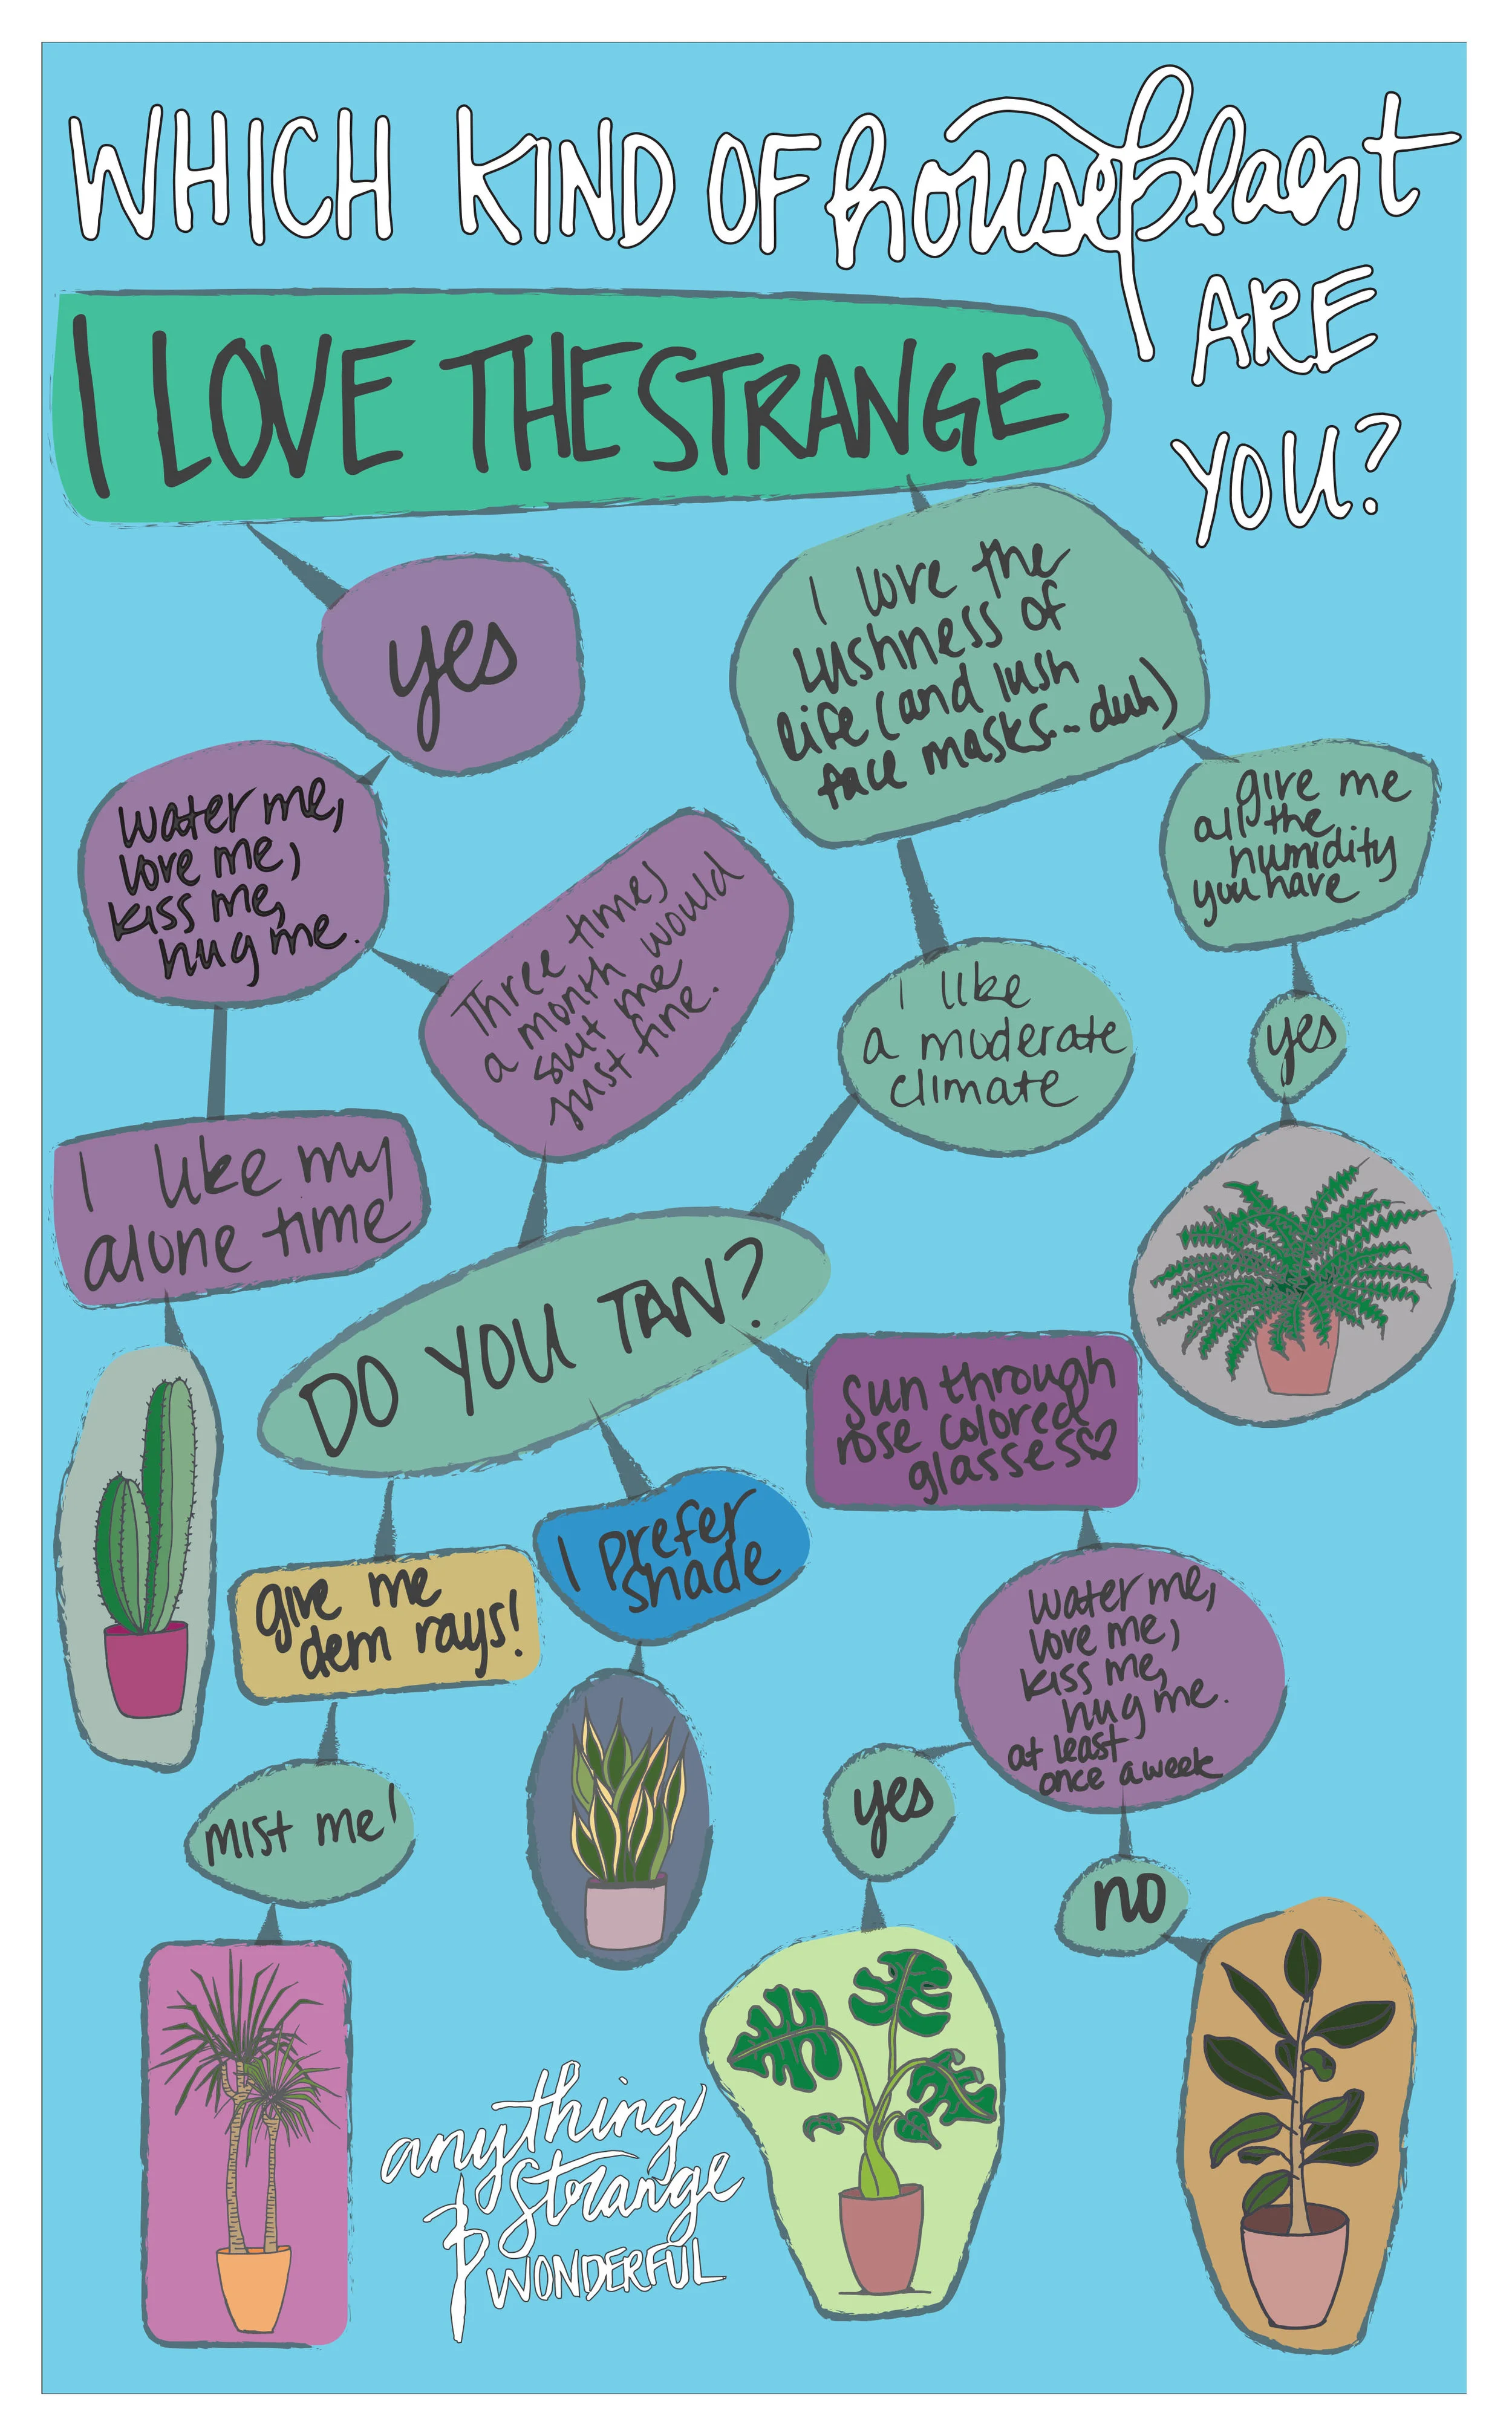 WHICH KIND OF houseplant
ARE
YOU?
I LOVE THE STRANGE
yes
I love the
lushness of
life (and lush
face masks... duh)
water me,
love me,
kiss me,
hug me.
give me
all the
humidity
you have
Three times
a month would
suit me
just fine.
I like
a moderate
climate
yes
I like my
alone time
DO YOU TAN?
sun through
rose colored
glasses♡
I prefer
shade
give me
dem rays!
water me,
love me,
kiss me,
hug me.
at least
once a week
yes
mist me!
no
anything
strange
& WONDERFUL